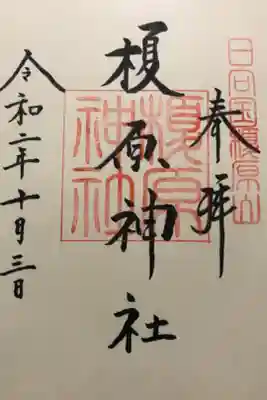 日向国榎原山
奉拝
榎原神社
榎原
神社
令和二年十月三日